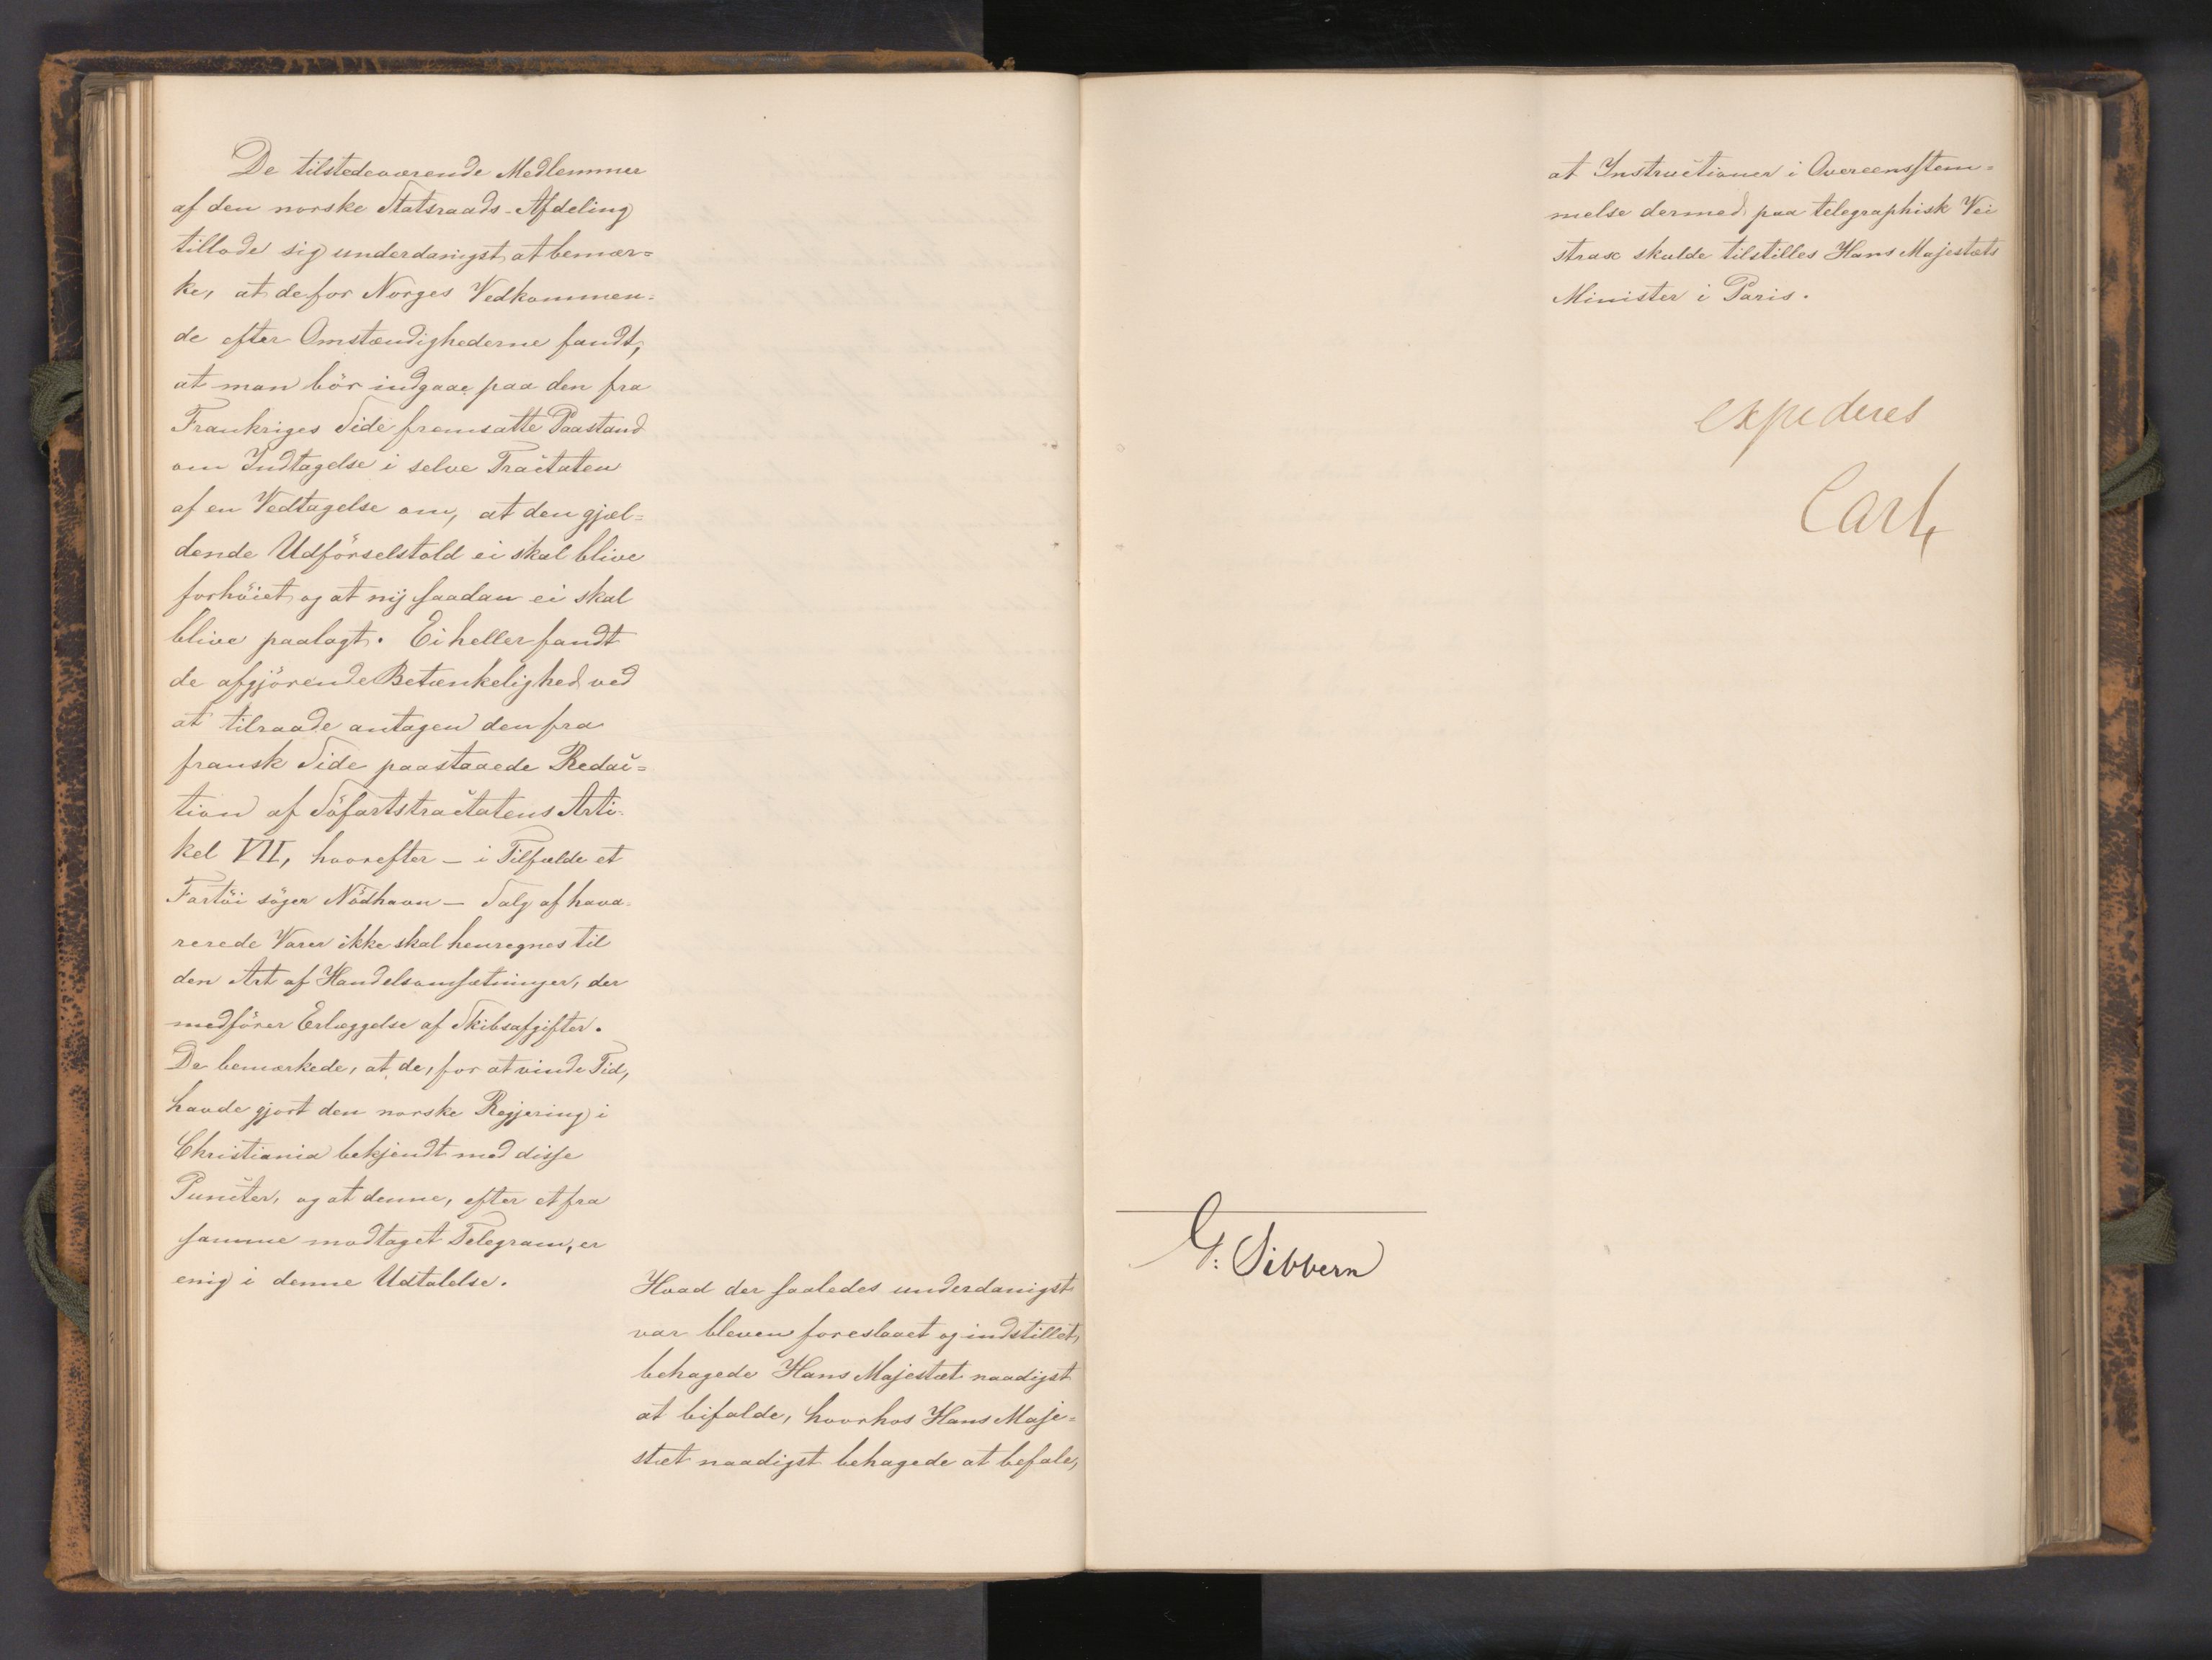 De tilstedeværende Medlemmer
af den norske Statsraads-Afdeling
tillode sig underdanigst at bemær=
ke, at de for Norges Vedkommen=
de efter Omstændighederne fandt,
at man bör indgaae paa den fra
Frankriges Side fremsatte Paastand
om Indtagelse i selve Tractaten
af en Vedtagelse om, at den gjæl=
dende Udförselstold ei skal blive
forhöiet og at nÿ saadan ei skal
blive paalagt. Ei heller fandt
de afgjörende Betænkelighed ved
at tilraade antagen den fra
fransk Side paastaaede Redac=
tion af Söfartstractatens Arti=
kel VII, hvorefter – i Tilfælde et
Fartöi söger Nödhavn – Salg af hava=
rerede Varer ikke skal henregnes til
den Art af Handelsomsætninger, der
medförer Erlæggelse af Skibsafgifter.
De bemærkede, at de, for at vinde Tid,
havde gjort den norske Regjering i
Christiania bekjendt med disse
Puncter, og at denne, efter et fra
samme modtaget Telegram, er
enig i denne Udtalelse.
Hvad der saaledes underdanigst
var bleven foreslaaet og indstillet,
behagede Hans Majestæt naadigst
at bifalde, hvorhos Hans Maje=
stæt naadigst behagede at befale,
at Instructioner i Overeensstem=
melse dermed paa telegraphisk Vei
strax skulde tilstilles Hans Majestæts
Minister i Paris.
expederes
Carl
G: Sibbern